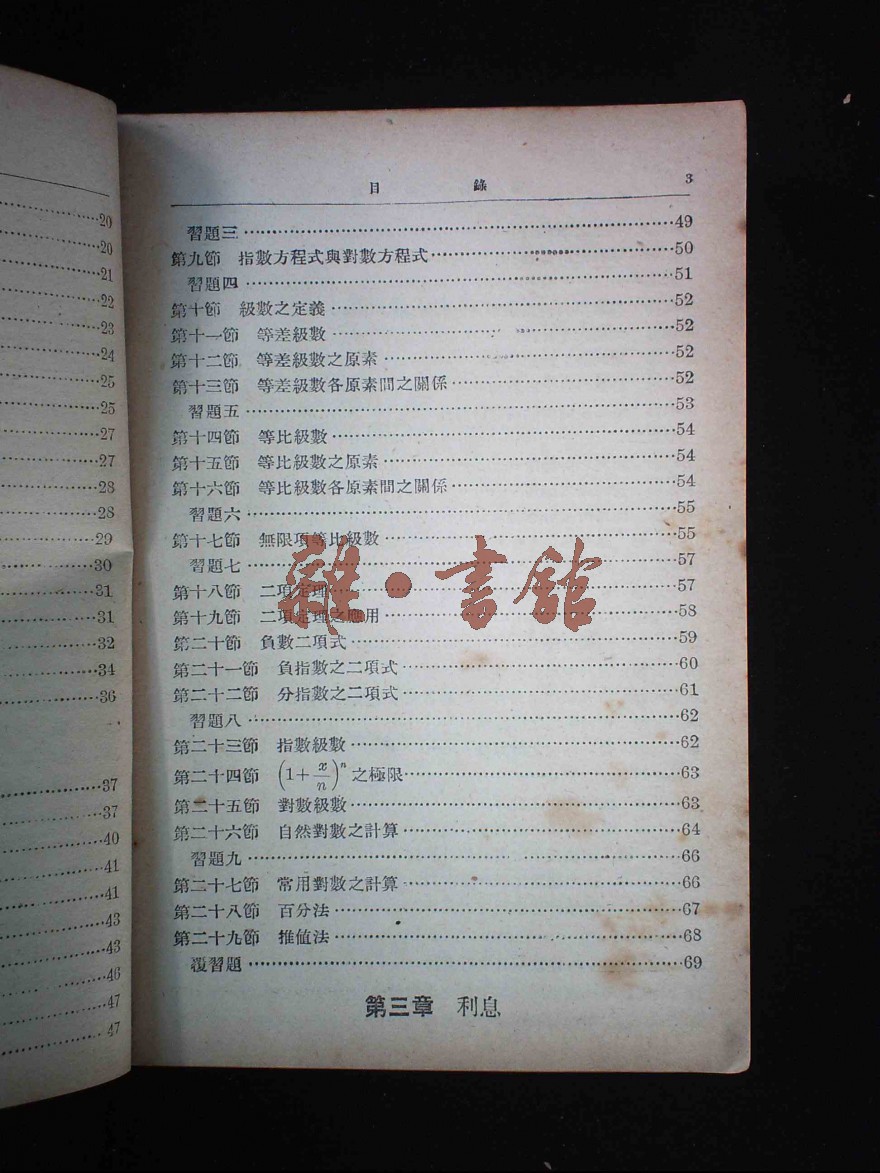 20
20
21
22
23
24
25
25
27
27
28
28
29
30
31
31
32
34
36
37
37
40
41
41
43
43
46
47
47
目 錄 3
習題三 49
第九節 指數方程式與對數方程式 50
習題四 51
第十節 級數之定義 52
第十一節 等差級數 52
第十二節 等差級數之原素 52
第十三節 等差級數各原素間之關係 52
習題五 53
第十四節 等比級數 54
第十五節 等比級數之原素 54
第十六節 等比級數各原素間之關係 54
習題六 55
第十七節 無限項等比級數 55
習題七 57
第十八節 二項定理 57
第十九節 二項定理之應用 58
第二十節 負數二項式 59
第二十一節 負指數之二項式 60
第二十二節 分指數之二項式 61
習題八 62
第二十三節 指數級數 62
第二十四節 (1+x/n)^n 之極限 63
第二十五節 對數級數 63
第二十六節 自然對數之計算 64
習題九 66
第二十七節 常用對數之計算 66
第二十八節 百分法 67
第二十九節 推值法 68
覆習題 69
第三章 利息
雜·書館